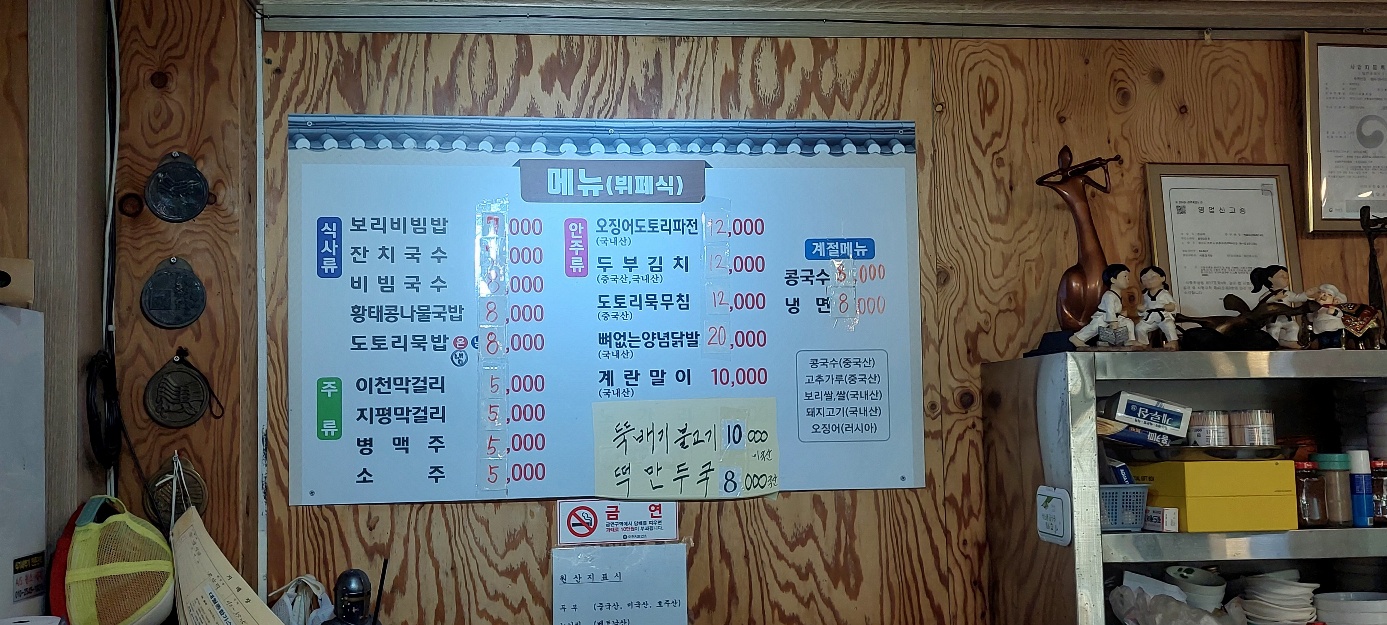 메뉴(뷔페식)
식사류
보리비빔밥 ,000
잔치국수 ,000
비빔국수 8,000
황태콩나물국밥 8,000
도토리묵밥 온 냉 8,000
주류
이천막걸리 5,000
지평막걸리 5,000
병맥주 5,000
소주 5,000
안주류
오징어도토리파전 12,000
(국내산)
두부김치 12,000
(중국산,국내산)
도토리묵무침 12,000
(중국산)
뼈없는양념닭발 20,000
(국내산)
계란말이 10,000
(국내산)
뚝배기불고기 10,000
떡만두국 8,000
계절메뉴
콩국수 8,000
냉면 8,000
콩국수(중국산)
고추가루(중국산)
보리쌀,쌀(국내산)
돼지고기(국내산)
오징어(러시아)
금연
원산지표시
두부 (중국산, 미국산, 호주산)
영업신고증